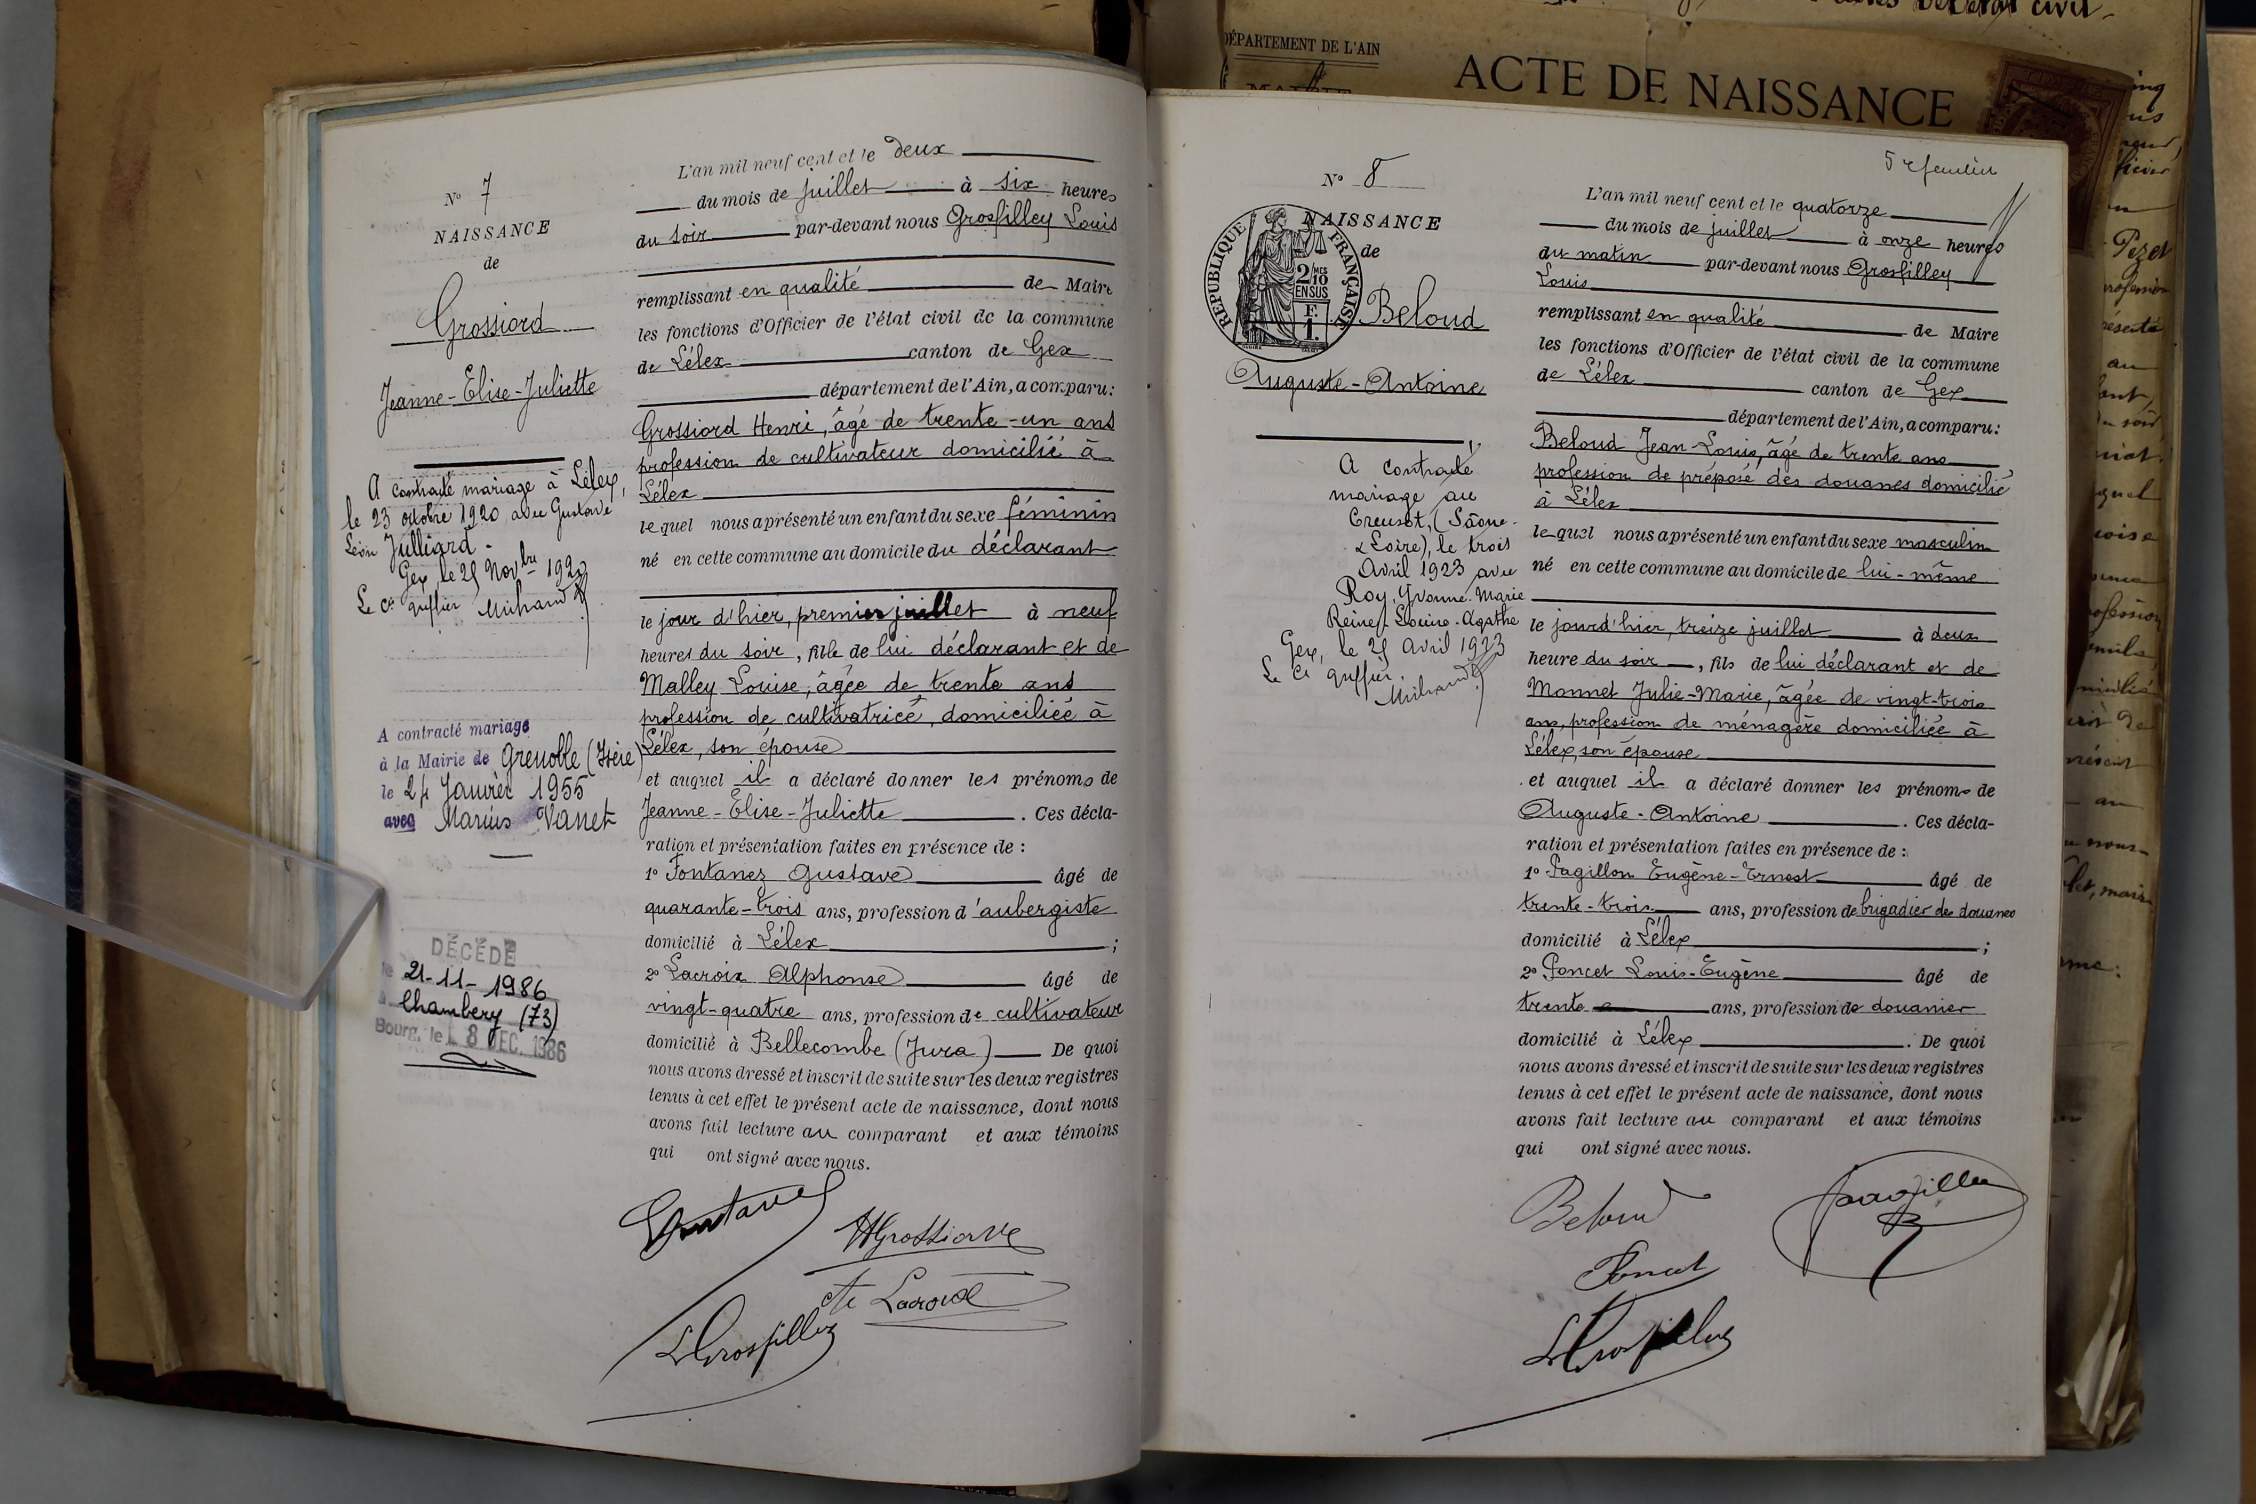 N° 7
NAISSANCE
de
Grossiord
Jeanne-Elise-Juliette
A contracté mariage à Lélex,
le 23 octobre 1920 avec Gustave
Léon Julliard.
Gex, le 25 Novbre 1920
Le Cis greffier
A contracté mariage
à la Mairie de Grenoble (Isère)
le 24 Janvier 1955
avec Marius Vanet
DÉCÉDÉ
le 21-11-1986
à Chambéry (73)
Bourg, le 8 DEC. 1986
L'an mil neuf cent et le deux
du mois de juillet à six heures
du soir par-devant nous Grosfilley Louis
remplissant en qualité de Maire
les fonctions d'Officier de l'état civil de la commune
de Lélex canton de Gex
département de l'Ain, a comparu:
Grossiord Henri, âgé de trente-un ans
profession de cultivateur domicilié à
Lélex
lequel nous a présenté un enfant du sexe féminin
né en cette commune au domicile du déclarant
le jour d'hier, premier juillet à neuf
heures du soir, fille de lui déclarant et de
Malley Louise, âgée de trente ans
profession de cultivatrice, domiciliée à
Lélex, son épouse
et auquel il a déclaré donner les prénoms de
Jeanne-Elise-Juliette. Ces décla-
ration et présentation faites en présence de :
1° Fontanez Gustave âgé de
quarante-trois ans, profession d'aubergiste
domicilié à Lélex ;
2° Lacroix Alphonse âgé de
vingt-quatre ans, profession de cultivateur
domicilié à Bellecombe (Jura) De quoi
nous avons dressé et inscrit de suite sur les deux registres
tenus à cet effet le présent acte de naissance, dont nous
avons fait lecture au comparant et aux témoins
qui ont signé avec nous.
Gustave
HGrossiord
Lacroix
LGrosfilley
DÉPARTEMENT DE L'AIN
ACTE DE NAISSANCE
N° 8
NAISSANCE
de
REPUBLIQUE FRANÇAISE
2/10
EN SUS
F.
1.
Beloud
Auguste-Antoine
A contracté
mariage au
Creusot, (Saône-
& Loire), le trois
Avril 1923 avec
Roy, Yvonne-Marie
Reine-Louise-Agathe
Gex, le 25 Avril 1923
Le Cis greffier.
L'an mil neuf cent et le quatorze
du mois de juillet à onze heures
du matin par-devant nous Grosfilley
Louis
remplissant en qualité de Maire
les fonctions d'Officier de l'état civil de la commune
de Lélex canton de Gex
département de l'Ain, a comparu:
Beloud Jean-Louis, âgé de trente ans
profession de préposé des douanes domicilié
à Lélex
lequel nous a présenté un enfant du sexe masculin
né en cette commune au domicile de lui-même
le jour d'hier, treize juillet à deux
heure du soir, fils de lui déclarant et de
Monnet Julie-Marie, âgée de vingt-trois
ans, profession de ménagère domiciliée à
Lélex, son épouse
et auquel il a déclaré donner les prénoms de
Auguste-Antoine. Ces décla-
ration et présentation faites en présence de :
1° Pagillon Eugène-Ernest âgé de
trente-trois ans, profession de brigadier des douanes
domicilié à Lélex ;
2° Poncet Louis-Eugène âgé de
trente ans, profession de douanier
domicilié à Lélex. De quoi
nous avons dressé et inscrit de suite sur les deux registres
tenus à cet effet le présent acte de naissance, dont nous
avons fait lecture au comparant et aux témoins
qui ont signé avec nous.
Beloud
Pagillon
Poncet
LGrosfilley